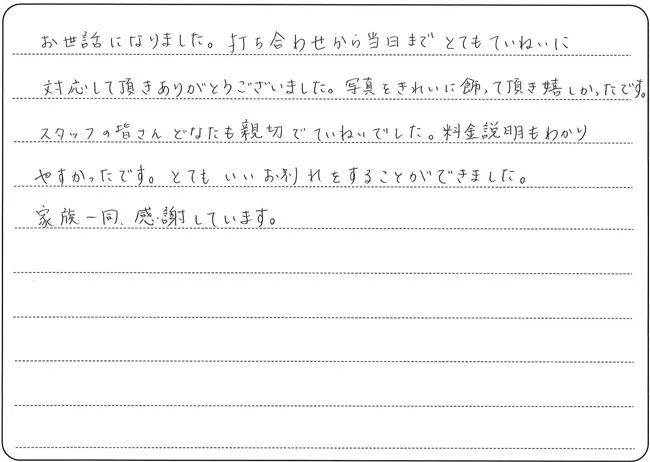 お世話になりました。打ち合わせから当日までとてもていねいに
対応して頂きありがとうございました。写真をきれいに飾って頂き嬉しかったです。
スタッフの皆さんどなたも親切でていねいでした。料金説明もわかり
やすかったです。とてもいいお別れをすることができました。
家族一同、感謝しています。